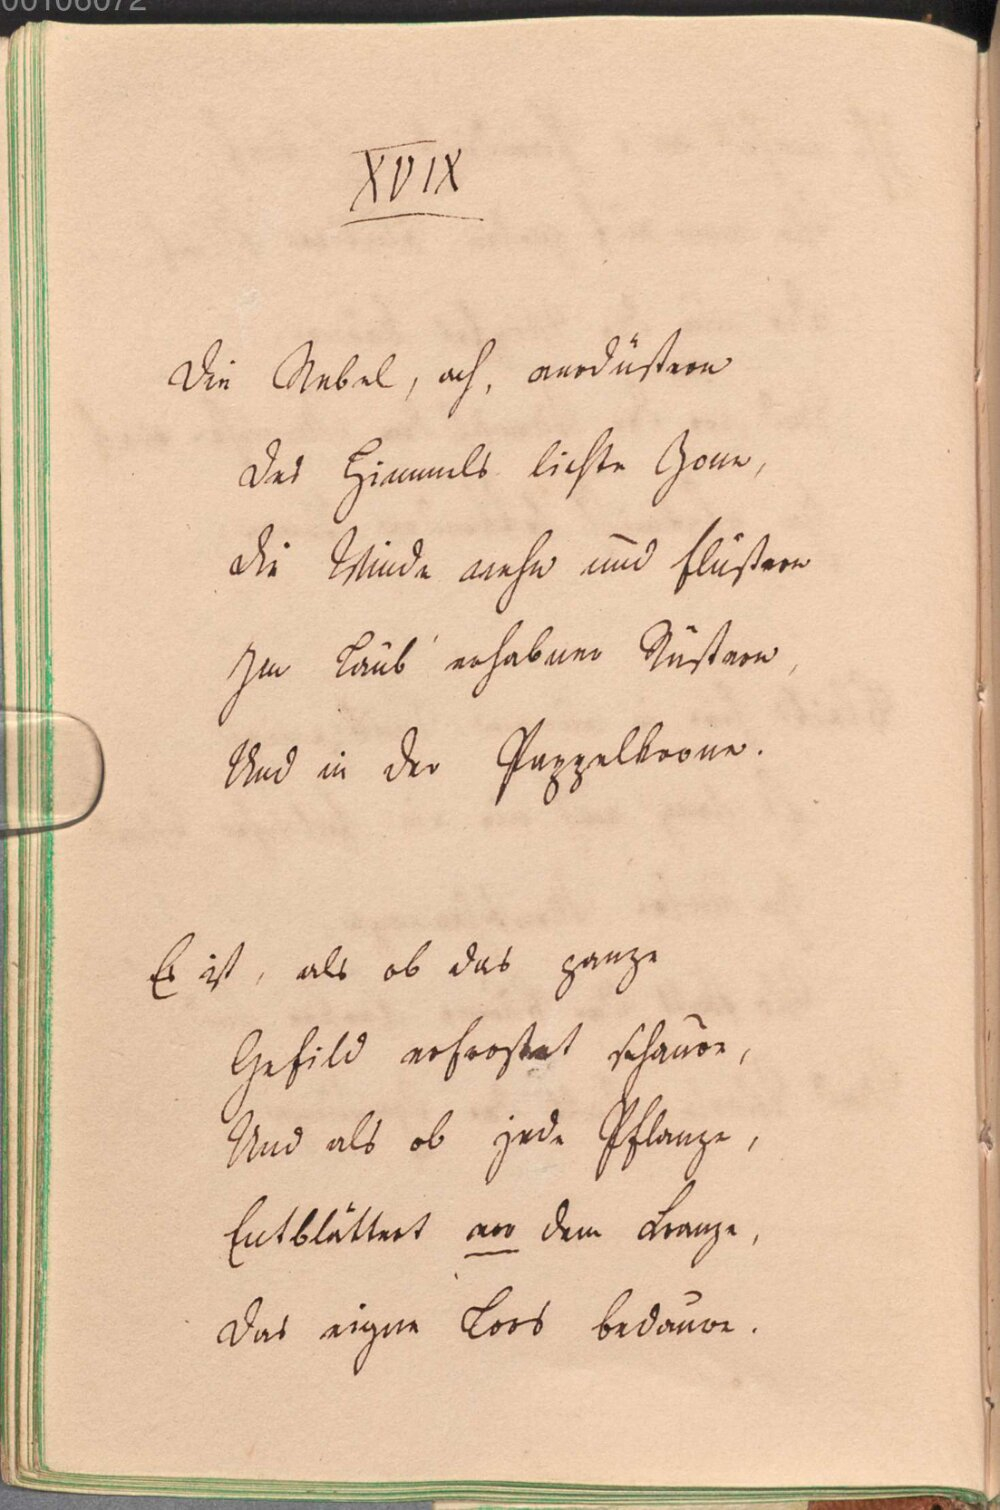 00106072
XVIX
Die Nebel, ach, verdüstern
Des Himmels lichte Zone,
Die Winde wehn und flüstern
Im Laub' erhabner Rüstern,
Und in der Pappelkrone.
Es ist, als ob das ganze
Gefild erfrostet schaure,
Und als ob jede Pflanze,
Entblättert vor dem Kranze,
Das eigne Loos bedaure.